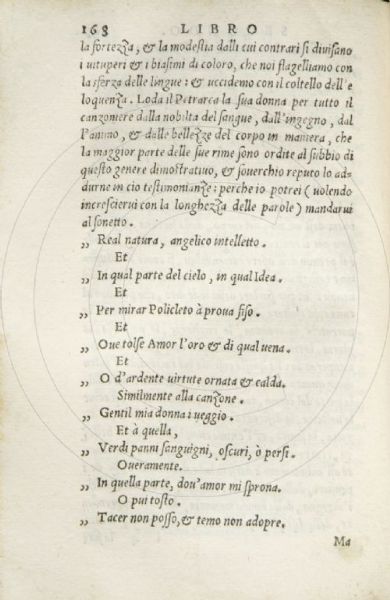 168 LIBRO
la fortezza, & la modestia dalli cui contrari si diuisano
i uituperi & i biasimi di coloro, che noi flagelliamo con
la sferza delle lingue: & uccidemo con il coltello dell'e
loquenza. Loda il Petrarca la sua donna per tutto il
canzoniere dalla nobilta del sangue, dall'ingegno, dal
l'animo, & dalle bellezze del corpo in maniera, che
la maggior parte delle sue rime sono ordite al subbio di
questo genere dimostratiuo, & souerchio reputo lo ad-
durne in cio testimonianze: perche io potrei (uolendo
increscierui con la longhezza delle parole) mandarui
al sonetto.
„ Real natura, angelico intelletto.
Et
„ In qual parte del cielo, in qual Idea.
Et
„ Per mirar Policleto à proua fiso.
Et
„ Oue tolse Amor l'oro & di qual uena.
Et
„ O d'ardente uirtute ornata & calda.
Similmente alla canzone.
„ Gentil mia donna i ueggio.
Et à quella,
„ Verdi panni sanguigni, oscuri, ò persi.
Oueramente.
„ In quella parte, dou'amor mi sprona.
O pui tosto.
„ Tacer non posso, & temo non adopre.
Ma